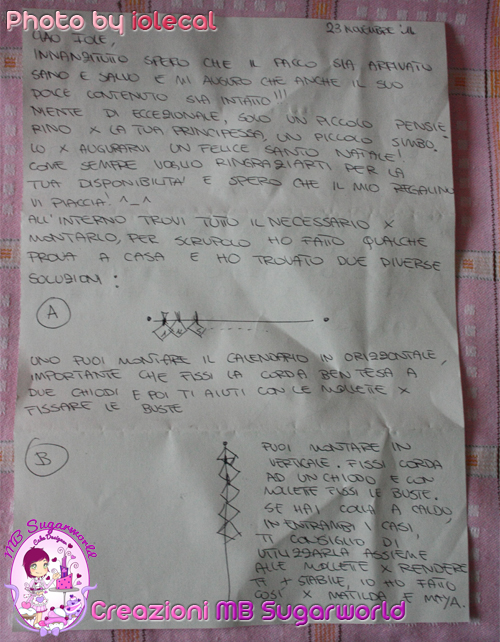 Photo by iolecal
23 NOVEMBRE '12
CIAO IOLE,
INNANZITUTTO SPERO CHE IL PACCO SIA ARRIVATO
SANO E SALVO E MI AUGURO CHE ANCHE IL SUO
DOLCE CONTENUTO SIA INTATTO!!!
NIENTE DI ECCEZIONALE, SOLO UN PICCOLO PENSIE-
RINO X LA TUA PRINCIPESSA, UN PICCOLO SIMBO-
LO X AUGURARVI UN FELICE SANTO NATALE!
COME SEMPRE VOGLIO RINGRAZIARTI PER LA
TUA DISPONIBILITA' E SPERO CHE IL MIO REGALINO
VI PIACCIA! ^_^
ALL'INTERNO TROVI TUTTO IL NECESSARIO X
MONTARLO, PER SCRUPOLO HO FATTO QUALCHE
PROVA A CASA E HO TROVATO DUE DIVERSE
SOLUZIONI:
A
UNO PUOI MONTARE IL CALENDARIO IN ORIZZONTALE,
IMPORTANTE CHE FISSI LA CORDA BEN TESA A
DUE CHIODI E POI TI AIUTI CON LE MOLLETTE X
FISSARE LE BUSTE
B
PUOI MONTARE IN
VERTICALE. FISSI CORDA
AD UN CHIODO E CON
MOLLETTE FISSI LE BUSTE.
SE HAI COLLA A CALDO,
IN ENTRAMBI I CASI,
TI CONSIGLIO DI
UTILIZZARLA ASSIEME
ALLE MOLLETTE X RENDERE
TI + STABILE, IO HO FATTO
COSI' X MATILDA E MAYA.
MB Sugarworld
Cake Designer
Creazioni MB Sugarworld